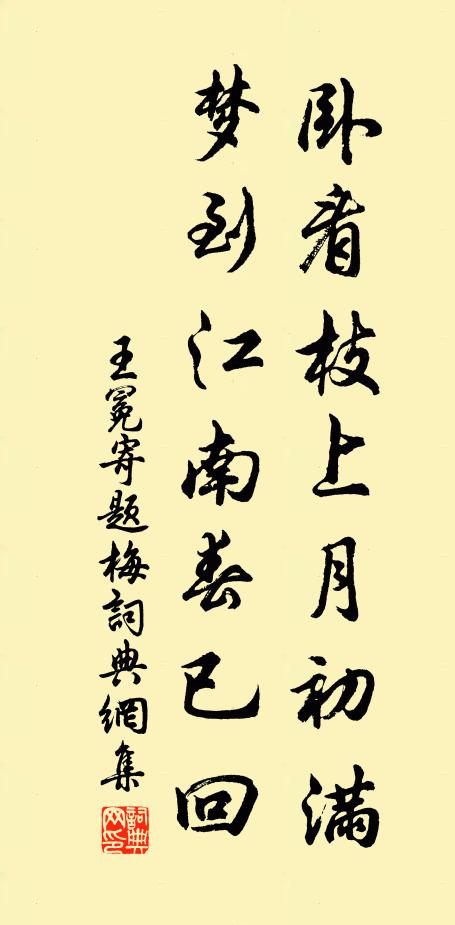 卧看枝上月初满
梦到江南春已回
王冕寄题梅詞典網集
詞典
网印